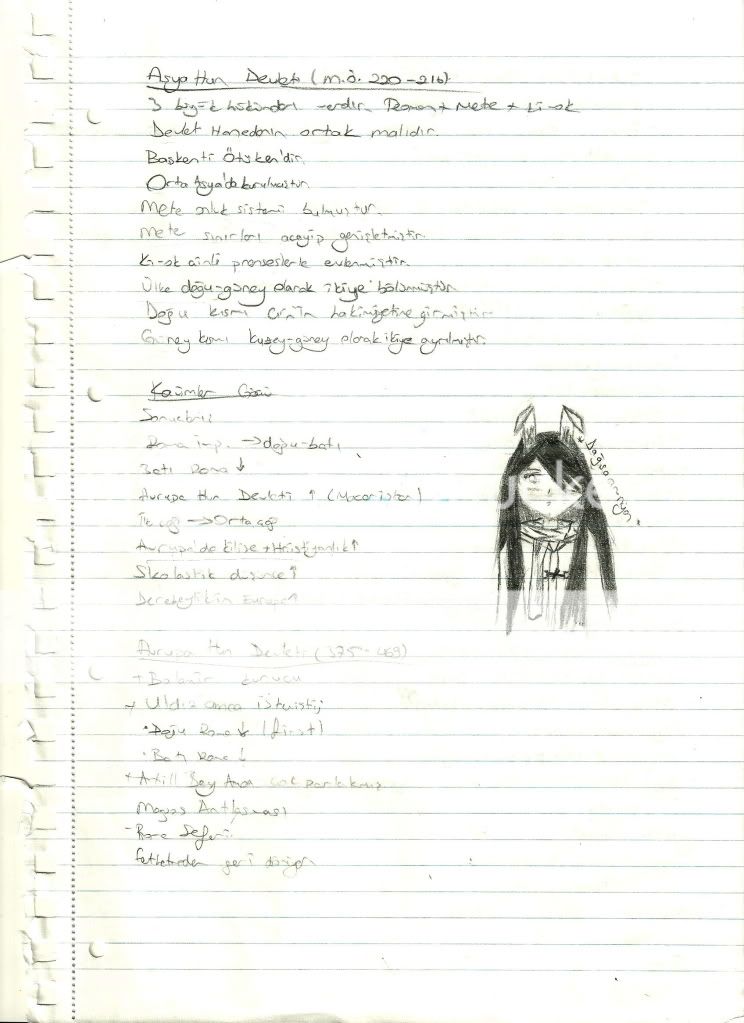 Asya Hun Devleti (M.Ö. 220-216)
3 büyük hükümdarı vardır. Teoman + Mete + Ki-ok
Devlet Hanedanın ortak malıdır.
Başkenti Ötüken'dir.
Orta Asya'da kurulmuştur.
Mete onluk sistemi bulmuştur.
Mete sınırları acayip genişletmiştir.
Ki-ok çinli prenseslerle evlenmiştir.
Ülke doğu-güney olarak ikiye bölünmüştür.
Doğu kısmı Çin'in hakimiyetine girmiştir.
Güney kısmı kuzey-güney olarak ikiye ayrılmıştır.
Kavimler Göçü
Roma imp. → doğu-batı
Batı Roma ↓
Avrupa Hun Devleti ↑ (Macaristan)
İlk çağ → Orta çağ
Avrupa'da kilise + Hristiyanlık ↑
Skolastik düşünce ↑
Derebeylik in Europe ↑
Avrupa Hun Devleti (375-469)
+ Balamir kurucu
+ Uldız amca
• Doğu Roma ↓ (first)
• Batı Roma ↓
+ Atill Bey Amca çok parlakmış
Margos Antlaşması
- Roma Seferi
fetihlerden geri dönüyor